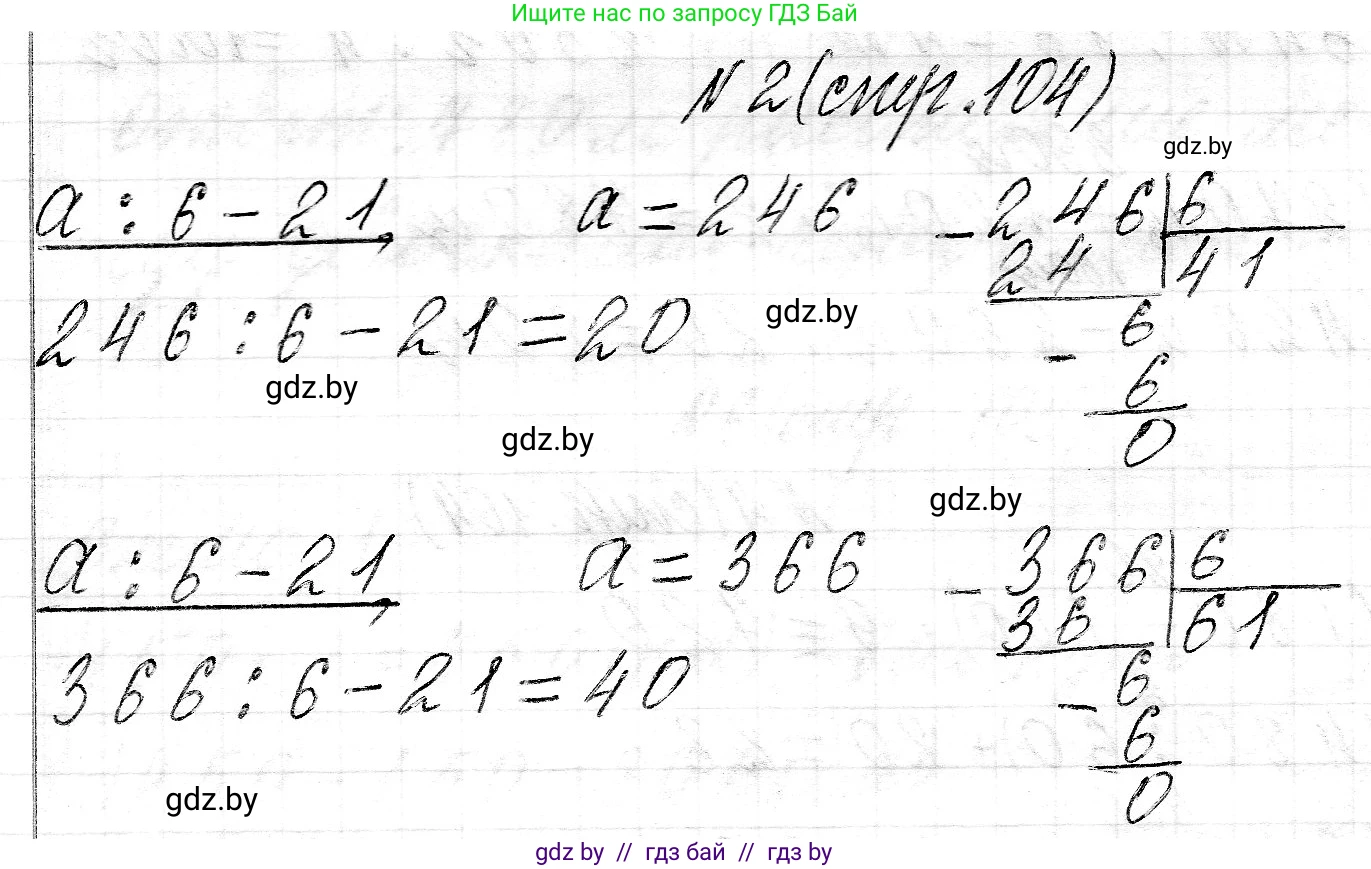 Ищите нас по запросу ГДЗ Бай
N 2 (стр. 104)
gdz.by
a : 6 - 21, a = 246
246 : 6 - 21 = 20
gdz.by
gdz.by
gdz.by
- 246 | 6
24 41
- 6
6
0
gdz.by
a : 6 - 21, a = 366
366 : 6 - 21 = 40
- 366 | 6
36 61
- 6
6
0
gdz.by
gdz by // гдз бай // гдз by